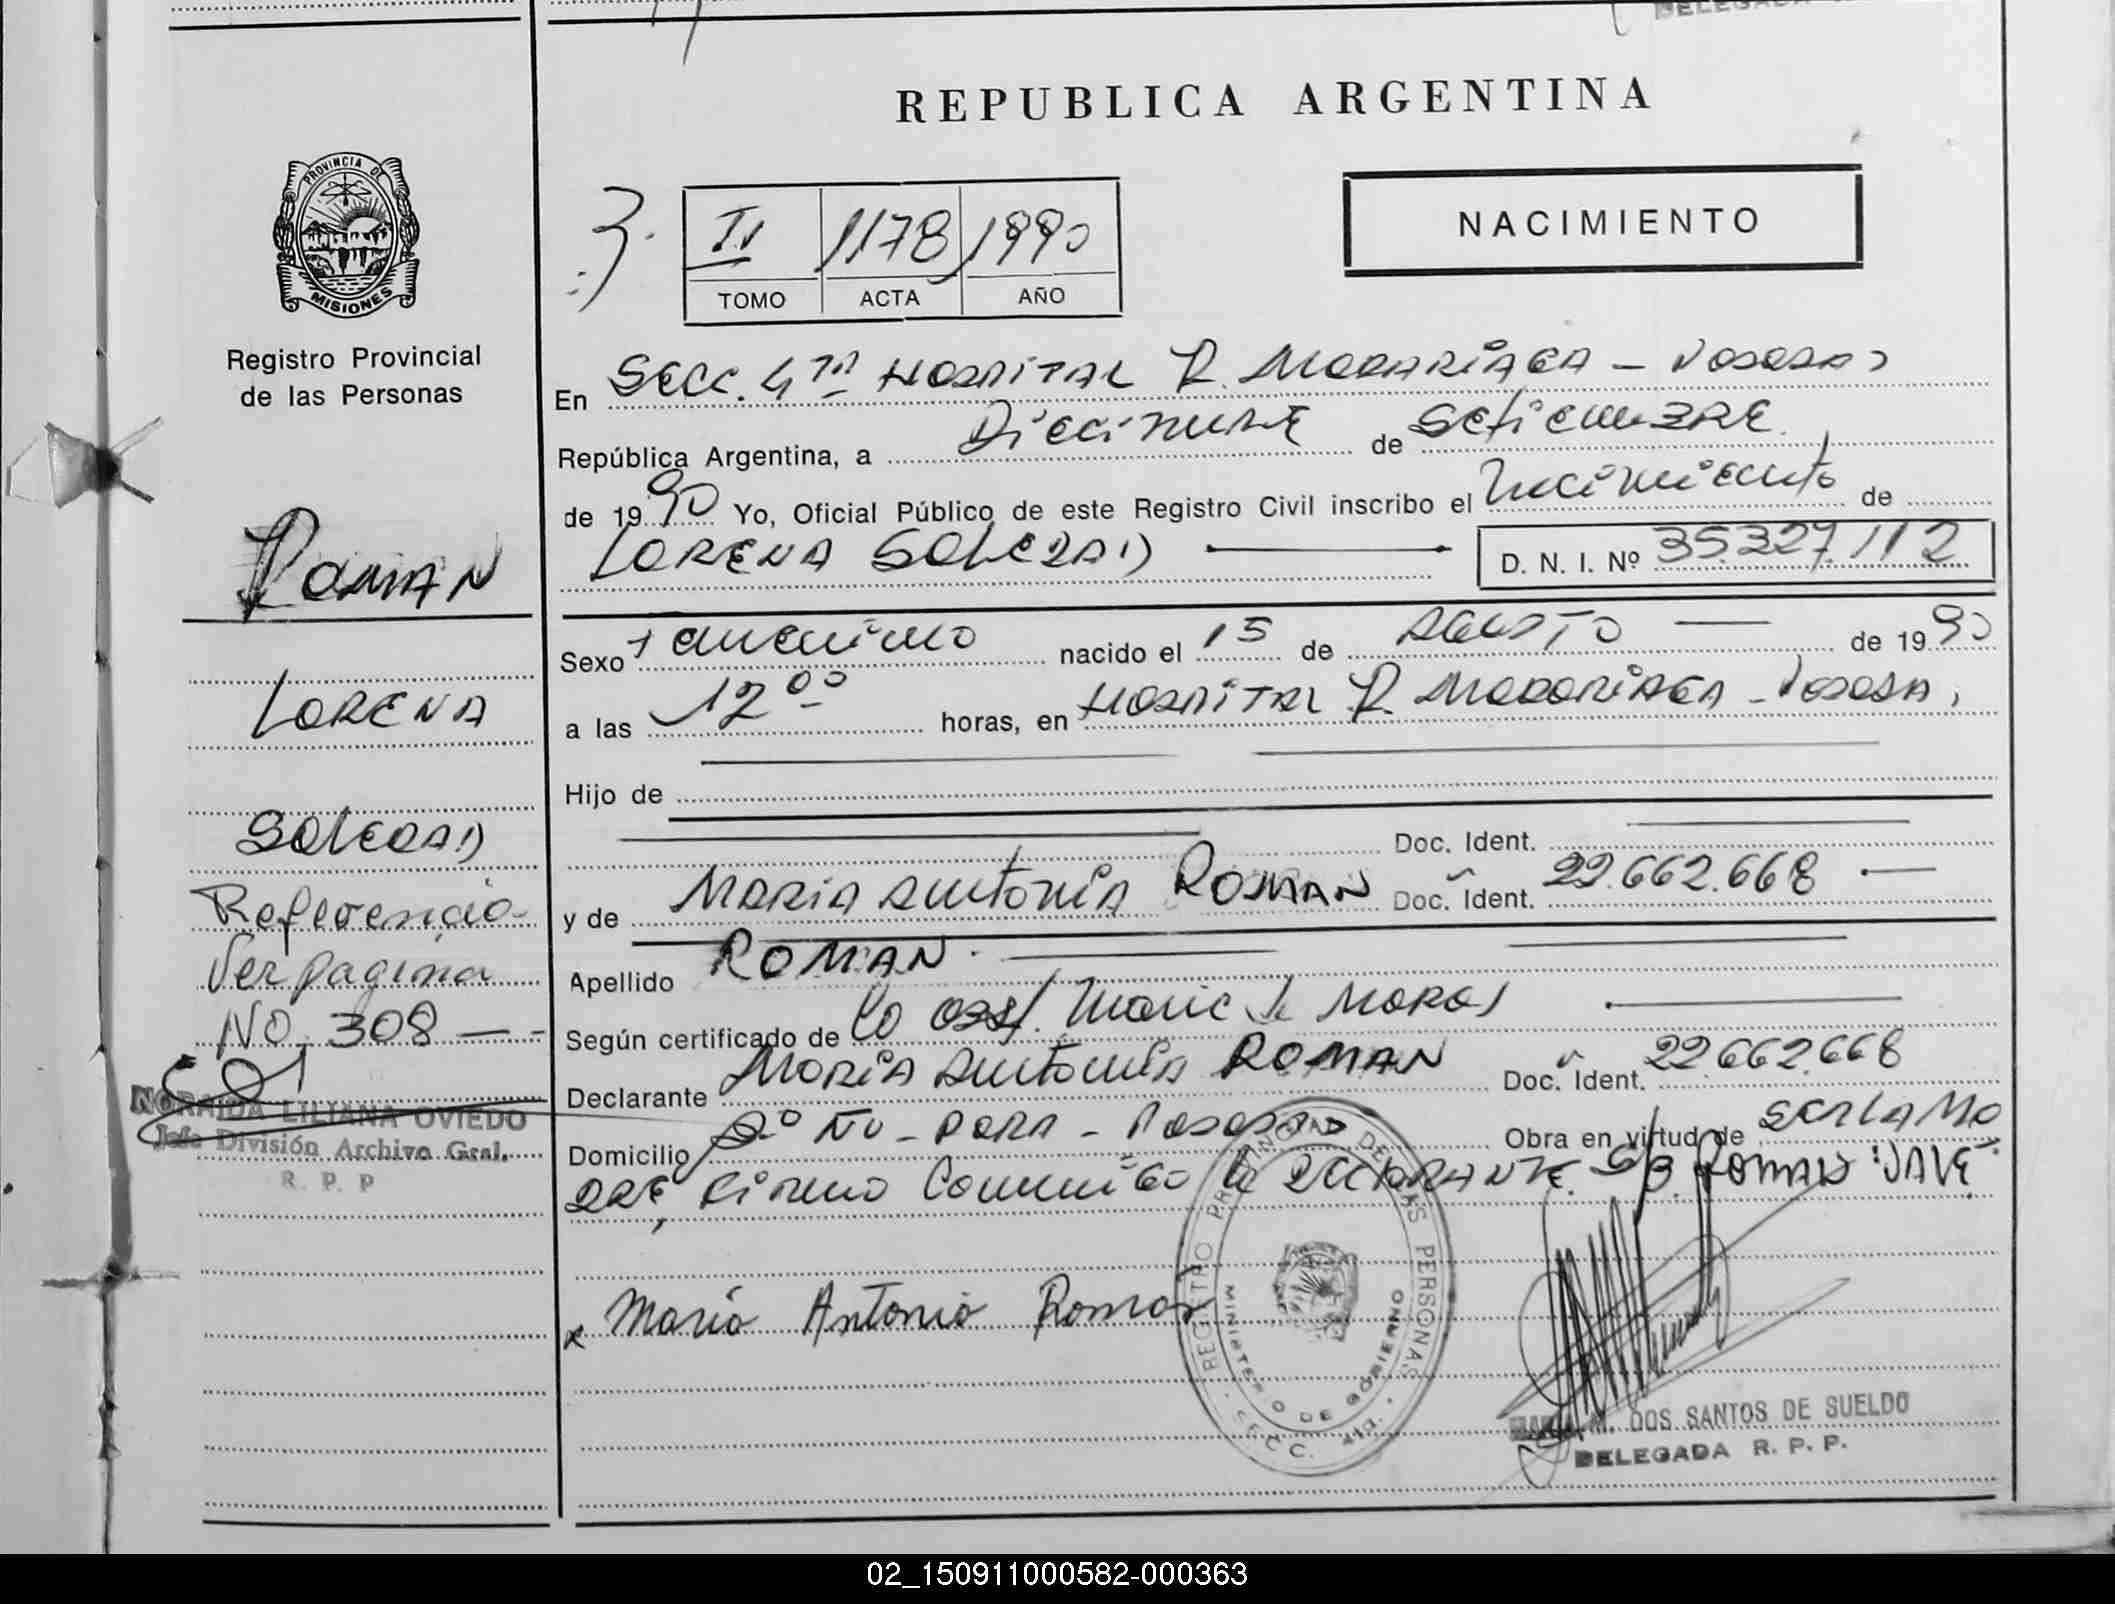 REPUBLICA ARGENTINA
PROVINCIA DE
MISIONES
Registro Provincial
de las Personas
NACIMIENTO
II 1178 1990
TOMO ACTA AÑO
En SECC. 4ta HOSPITAL R. MADARIAGA - POSADAS
República Argentina, a Diecinueve de Setiembre
de 1990 Yo, Oficial Público de este Registro Civil inscribo el Nacimiento de
LORENA SOLEDAD D. N. I. Nº 35.327.112
Sexo Femenino nacido el 15 de AGOSTO de 1990
a las 12 00 horas, en HOSPITAL R. MADARIAGA - POSADAS
Hijo de
Doc. Ident.
y de MARIA ANTONIA ROMAN Doc. Ident. 22.662.668
Apellido ROMAN
Según certificado de MORAS
Declarante MARIA ANTONIA ROMAN Doc. Ident. 22662.668
Domicilio POSADAS Obra en virtud de SER LA MA
DRE, FIRMA CONMIGO LA DECLARANTE. S/B. ROMAN "VALE"
Maria Antonia Roman
REGISTRO PROVINCIAL DE LAS PERSONAS
MINISTERIO DE GOBIERNO
SECC. 4ta.
M. DOS SANTOS DE SUELDO
DELEGADA R. P. P.
ROMAN
LORENA
SOLEDAD
Referencia
Ver pagina
NO 308
NORAIDA LILIANA OVIEDO
Jefe División Archivo Gral.
R. P. P
02_150911000582-000363